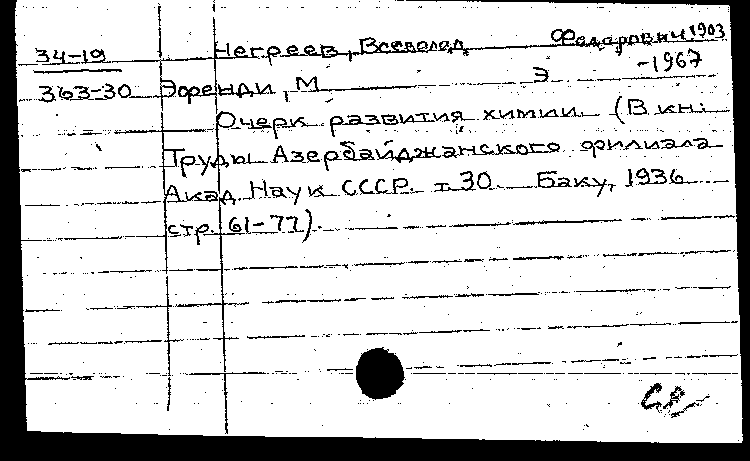 34-19 Негреев, Всеволод Федорович 1903
-1967
363-30 Эфенди, М Э
Очерк развития химии. (В кн:
Труды Азербайджанского филиала
Акад. Наук СССР. т. 30. Баку, 1936
стр. 61-77).